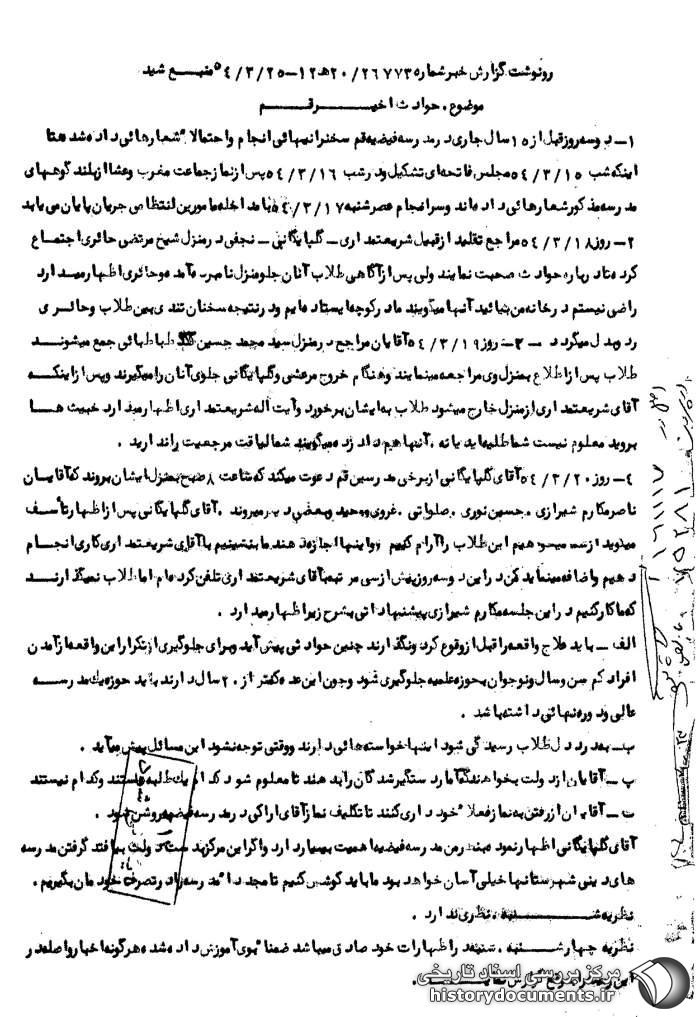 رونوشت گزارش خبر شماره ۲۶۷۷۳۵/ ۲۰ ه‍ ۱۲ - ۲۵/ ۳/ ۵۴ منبع شید
موضوع . حوادث اخیر قم
۱- دوسه روز قبل از ۱۵ سال جاری در مدرسه فیضیه قم سخنرانیهائی انجام و احتمالا" شعارهائی داده شد هتا
اینکه شب ۱۵/ ۳/ ۵۴ مجلس فاتحه‌ای تشکیل و در شب ۱۶/ ۳/ ۵۴ پس از نماز جماعت مغرب و عشا از بلند گوههای
مدرسه مذکور شعارهائی داده اند و سرانجام عصر شنبه ۱۷/ ۳/ ۵۴ با مداخله مامورین انتظامی جریان پایان می یابد
۲- روز ۱۸/ ۳/ ۵۴ مراجع تقلید از قبیل شریعتمداری - گلپایگانی - نجفی در منزل شیخ مرتضی حائری اجتماع
کرده تا درباره حوادث صحبت نمایند ولی پس از آگاهی طلاب آنان جلو منزل نامبرده آمده و حائری اظهار میدارد
راضی نیستم در خانه من بیائید آنها میگویند ما در کوچه ایستاده ایم و در نتیجه سخنان تندی بین طلاب و حائری
رد و بدل میگردد - ۳- روز ۱۹/ ۳/ ۵۴ آقایان مراجع در منزل سید محمد حسین طباطبائی جمع میشوند
طلاب پس از اطلاع بمنزل وی مراجعه مینمایند و هنگام خروج مرعشی و گلپایگانی جلوی آنان را میگیرند و پس از اینکه
آقای شریعتمداری از منزل خارج میشود طلاب به ایشان برخورد و آیت اله شریعتمداری اظهار میدارد خبیث ها
بروید معلوم نیست شما طلبه اید یا نه ، آنها هم داد زده میگویند شما لیاقت مرجعیت را ندارید .
۴- روز ۲۰/ ۳/ ۵۴ آقای گلپایگانی از برخی مدرسین قم دعوت میکند که ساعت ۸ صبح بمنزل ایشان بروند که آقایان
ناصر مکارم شیرازی . حسین نوری . صلواتی . غروی و وحید و بعضی دیگر میروند . آقای گلپایگانی پس از اظهار تأسف
میگوید از سه میخواهیم این طلاب را آرام کنیم و اینها اجازه ندهند ما بنشینیم با آقای شریعتمداری کاری انجام
دهیم و اضافه مینماید که من در این دوسه روز بیش از سی مرتبه با آقای شریعتمداری تلفن کرده ام اما طلاب نمیگذارند
که ما کار کنیم در این جلسه مکارم شیرازی پیشنهاداتی بشرح زیر اظهار میدارد .
الف - باید علاج واقعه را قبل از وقوع کرد و نگذارند چنین حوادثی پیش آید و برای جلوگیری از تکرار این واقعه از آمدن
افراد کم سن و سال و نوجوان به حوزه علمیه جلوگیری شود و چون این عده کمتر از ۲۰ سال دارند باید حوزه یک مدرسه
عالی و دوره نهائی داشته باشد .
ب- به درد دل طلاب رسیدگی شود اینها خواسته هائی دارند و وقتی توجه نشود این مسائل پیش میآید .
پ- آقایان از دولت بخواهند که آمار دستگیر شدگان را بدهند تا معلوم شود کدام یک طلبه هستند و کدام نیستند
ت - آقایان از رفتن به نماز فعلا" خود داری کنند تا تکلیف نماز آقای اراکی در مدرسه فیضیه روشن شود .
آقای گلپایگانی اظهار نمود به نظر من مدرسه فیضیه اهمیت بسیار دارد و اگر این مرکز بدست دولت بیافتد گرفتن مدرسه
های دینی شهرستانها خیلی آسان خواهد بود ما باید کوشش کنیم تا مجددا" مدرسه را در تصرف خودمان بگیریم .
نظریه شنبه . نظری ندارد .
نظریه چهارشنبه . شنبه در اظهارات خود صادق میباشد ضمنا" بوی آموزش داده شد هرگونه اخبار واصله در
مرکز بررسی اسناد تاریخی
historydocuments.ir